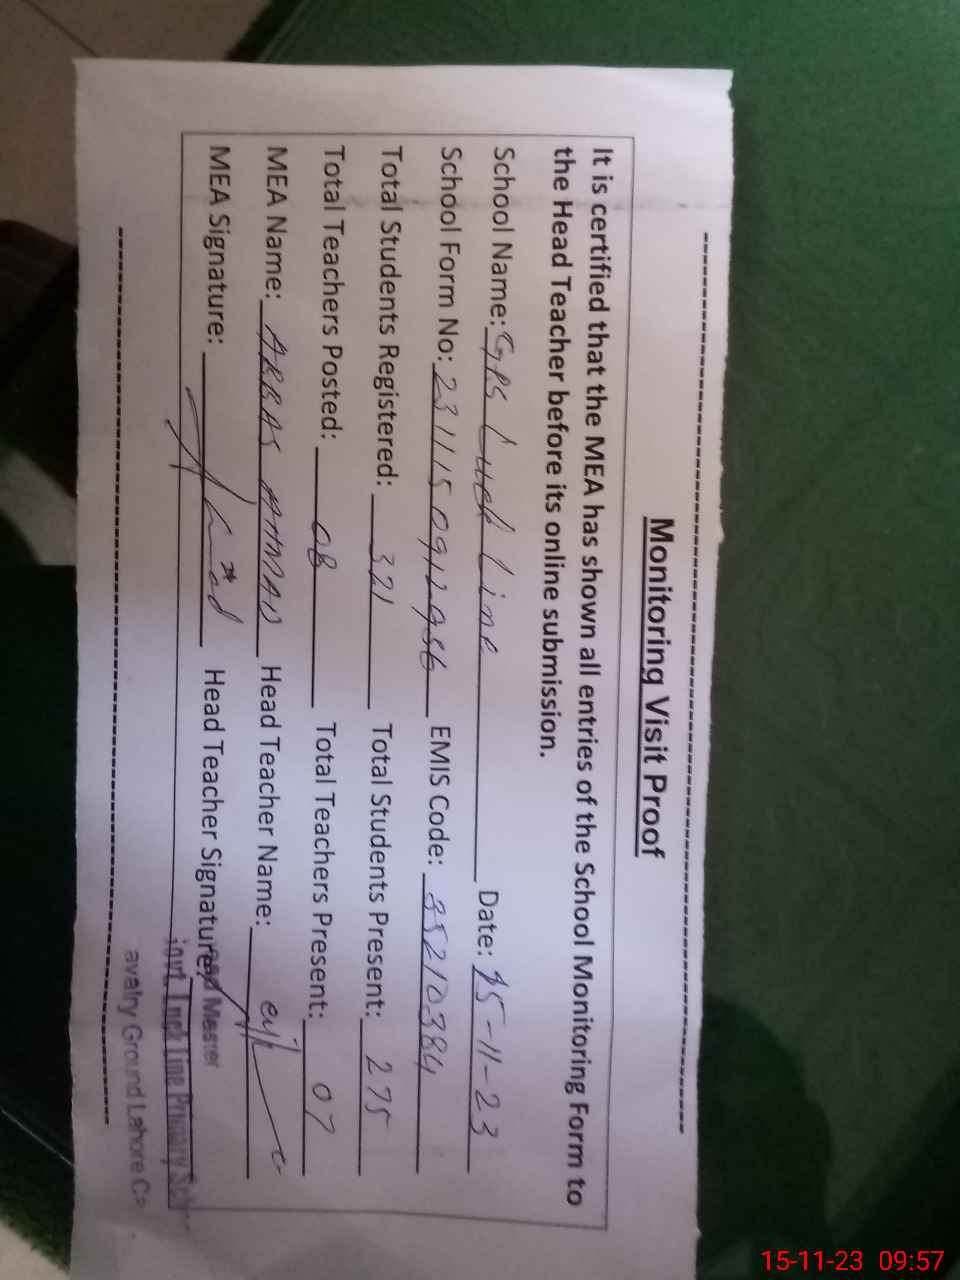 Monitoring Visit Proof
It is certified that the MEA has shown all entries of the School Monitoring Form to
the Head Teacher before its online submission.
School Name: GPS Luck Line Date: 15-11-23
School Form No: 2311150912956 EMIS Code: 35210384
Total Students Registered: 321 Total Students Present: 275
Total Teachers Posted: 08 Total Teachers Present: 07
MEA Name: ARBAS AHMAD Head Teacher Name:
MEA Signature: Head Teacher Signature:
Master
Govt. Luck Line Primary Sch
avalry Ground Lahore Ca
15-11-23 09:57